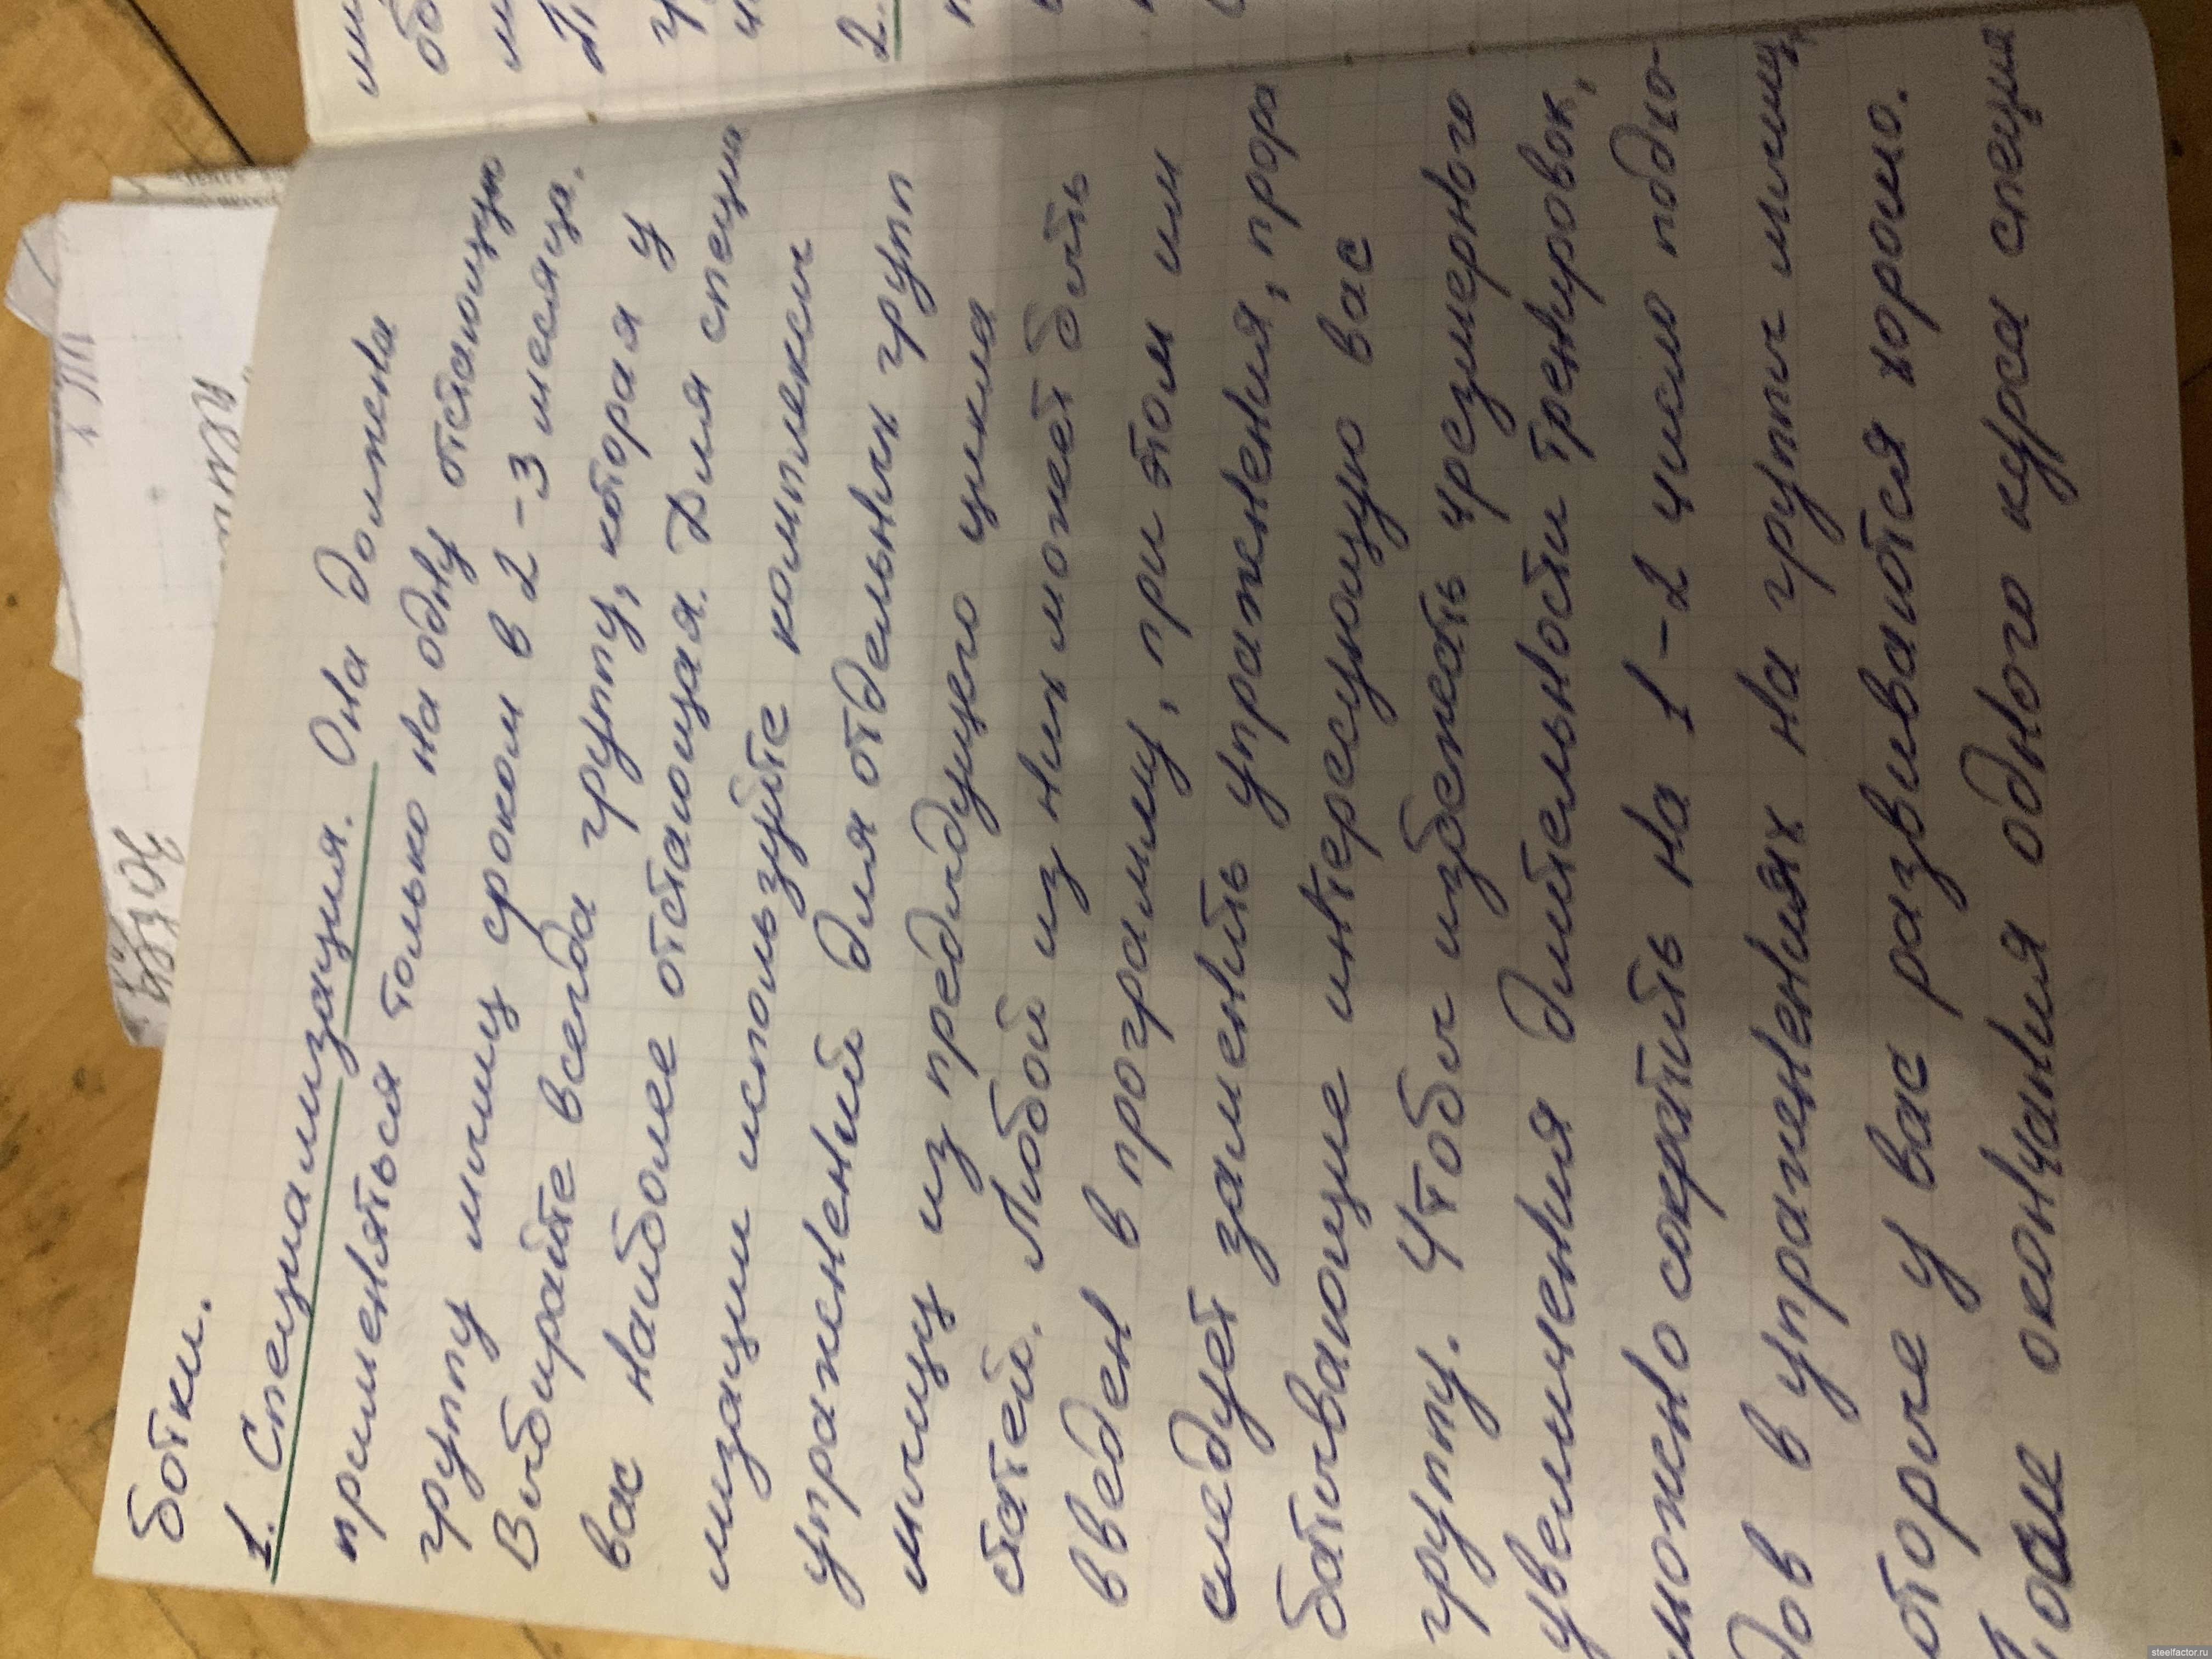 ботки.
1. Специализация. Она должна
применяться только на одну отстающую
группу мышц сроком в 2-3 месяца.
Выбирайте всегда группу, которая у
вас наиболее отстающая. Для специа
лизации используйте комплексы
упражнений для отдельных групп
мышц из предыдущего цикла
статей. Любой из них может быть
введен в программу, при этом им
следует заменить упражнения, прора
батывающие интересующую вас
группу. Чтобы избежать чрезмерного
увеличения длительности тренировок,
можно сократить на 1-2 число подхо-
дов в упражнениях на группы мышц,
оторые у вас развиваются хорошо.
После окончания одного курса специа
2.
steelfactor.ru